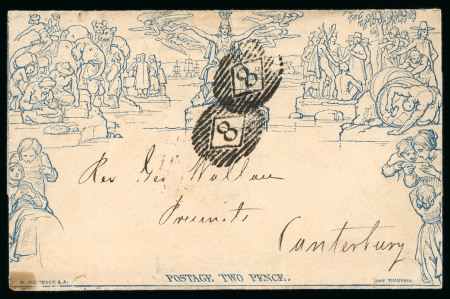 8
8
Rev Geo Wallace
Precincts
Canterbury
W. MULREADY, R.A.
POSTAGE TWO PENCE.
JOHN THOMPSON.